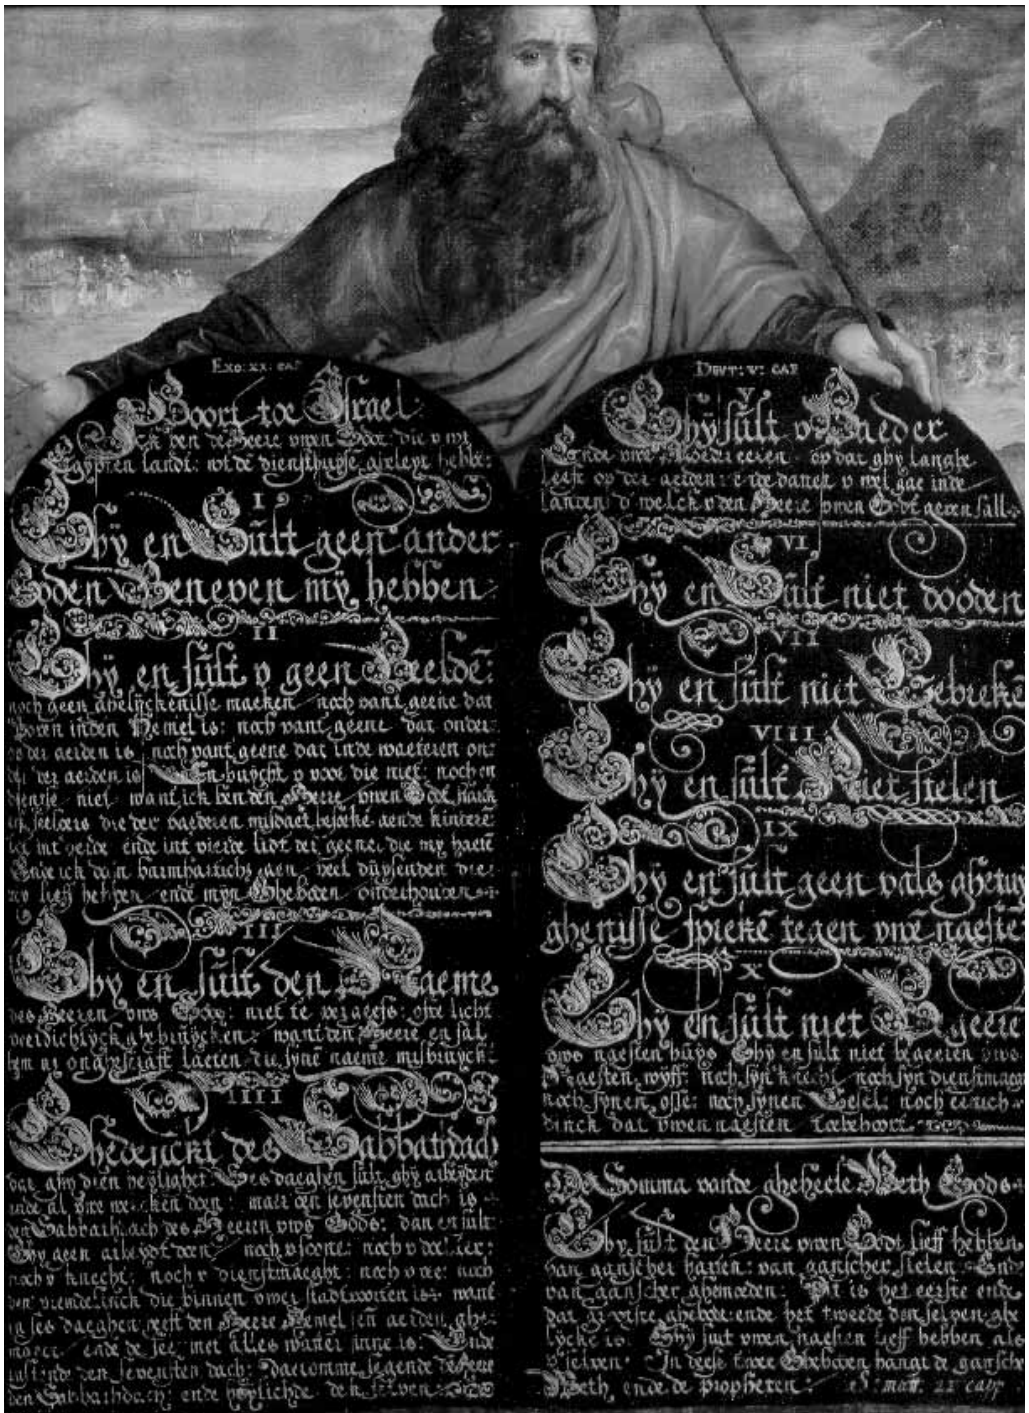 EXO: XX: CAP
Hoort toe Israel:
Ick ben de Heere uwen Godt: die u wt
Egypten landt: wt dē diensthuyse geleyt hebbe:
I
Ghÿ en Sūlt geen ander
Goden Beneven mÿ hebben
II
Ghÿ en sūlt v geen Beeldē:
noch geen ghelijckenisse maeken noch vant geene dat
Boven inden Hemel is: noch vant geene dat onder
op der aerden is noch vant geene dat inde waeteren on:
der der aerden is En buycht v voor die niet: noch en
dientse niet want ick ben den Heere uwen Godt
die der vaederen misdaet besoeke aende kintere
int derde ende int vierde lidt der geener die my haetē
Ende ick doe barmharticheyt aen veel duysenden die
my lieff hebben ende mÿn Ghebooen onderhouden
III
Ghÿ en sūlt den Naeme
des Heeren uws Gods: niet te vergeefs: ofte licht
veerdichlÿck ghebruÿcken: want den Heere en sal
hem niet onghestraft laeten die synē naemē misbruyck:
IIII
Ghedenckt des Sabbathdach
dat ghÿ dien heylighet: Ses daeghen sult ghÿ arbeyden
ende al uwe wercken doen: maer den sevensten dach is
den Sabbathdach des Heeren uws Gods: dan en sult
Ghy geen arbeydt doen noch v soone: noch v dochter:
noch v knecht: noch v dienstmaeght: noch v vee: noch
den vremdelinck die binnen uwer stadt is: want
in ses daeghen heeft den Heere Hemel en aerden ghe:
maect ende de see met alles watter inne is: Ende
ruste den sevensten dach: daeromme segende de Heere
den Sabbathdach: ende heylichde den selven
DEUT: V: CAP
V
Ghÿ sūlt v Vaeder
Ende uwe Moeder eeren op dat ghy langhe
leeft op der aerden: ende dattet v wel gae inde
landen d'welck v den Heere uwen Godt geven sall
VI
Ghÿ en Sūlt niet dooden
VII
Ghÿ en sūlt niet Eebrekē
VIII
Ghÿ en sūlt Niet stelen
IX
Ghÿ en sūlt geen vals ghetuy
ghenisse sprekē tegen uwē naestē
X
Ghÿ en sūlt niet Begeere
uws naesten huys Ghy en sult niet begeeren uws
Naesten wÿff: noch sÿn knecht noch syn dienstmaecht
noch synen osse: noch synen Eesel: noch
dinck dat uwen naesten toebehoort
De Somma vande gheheele Weth Gods
Ghy sult den Heere uwen Godt lieff hebben
van ganscher herten: van ganscher sielen Ende
van ganscher ghemoeden: Dit is het eerste ende
dat grootste ghebodt: ende het tweede den selven ghe
lÿcke is: Ghÿ sult uwen naesten lieff hebben als
v selven: In deese twee Gheboden hangt de gansche
Weth ende de propheten: S: matt. 22 capp